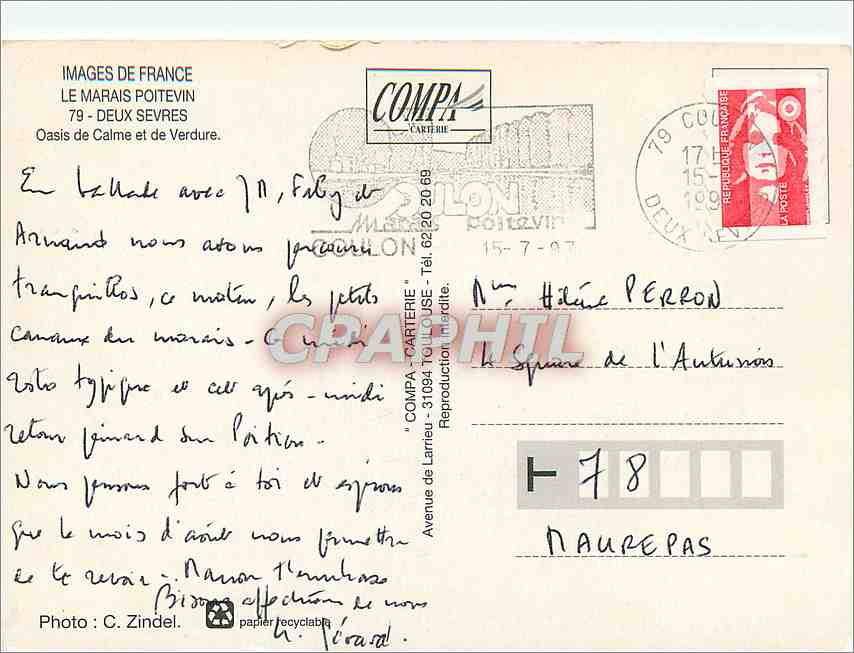 IMAGES DE FRANCE
LE MARAIS POITEVIN
79 - DEUX SEVRES
Oasis de Calme et de Verdure.
COMPA
CARTERIE
Marais poitevin
COULON
15-7-97
79 COU
17H
15-
199
DEUX SEV
REPUBLIQUE FRANÇAISE
LA POSTE
En ballade avec JM, Faby et
Armand nous avons parcouru
tranquillos, ce matin, les petits
canaux du marais - Ce midi
resto typique et cet après-midi
retour peinard sur Poitiers -
Nous pensons fort à toi et espérons
que le mois d'août nous permettra
de te revoir - Manon t'embrasse
Bisous affectueux de nous
Gérard.
" COMPA - CARTERIE "
Avenue de Larrieu - 31094 TOULOUSE - Tél. 62 20 20 69
Reproduction interdite.
CPAPHIL
Mme Hélène PERRON
4 Square de l'Autunois
78
MAUREPAS
Photo : C. Zindel.
papier recyclable